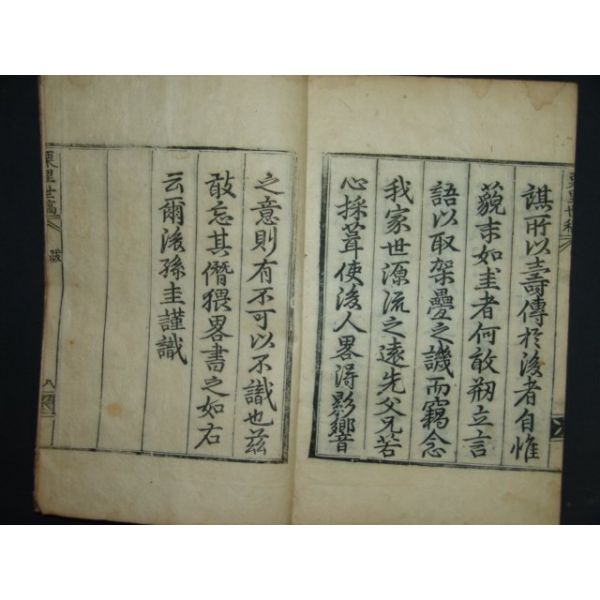 謀所以壽傳於後者自惟
藐末如圭者何敢刱立言
語以取架疊之譏而竊念
我家世源流之遠先父兄苦
心採葺使後人畧得影響
之意則有不可以不識也茲
敢忘其僭猥畧書之如右
云爾後孫圭謹識
栗里世稿
跋
八